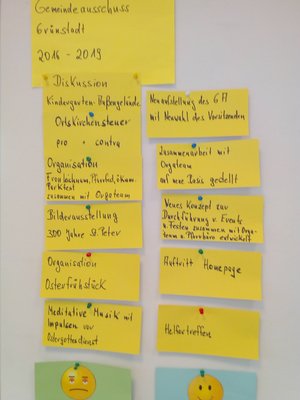 Gemeindeausschuss
Grünstadt
2016 - 2019
Diskussion
Kindergarten-Außengelände
Ortskirchensteuer
pro + contra
Organisation
Fronleichnam, Pfarrfest, ökum.
Parkfest
zusammen mit Orgateam
Bilderausstellung
300 Jahre St. Peter
Organisation
Osterfrühstück
Meditative Musik mit
Impulsen vor
Ostergottesdienst
Neuaufstellung des GA
mit Neuwahl des Vorsitzenden
Zusammenarbeit mit
Orgateam
auf neue Basis gestellt
Neues Konzept zur
Durchführung v. Events
u. Festen zusammen mit Orga-
team u. Pfarrbüro entwickelt
Auftritt Homepage
Helfertreffen